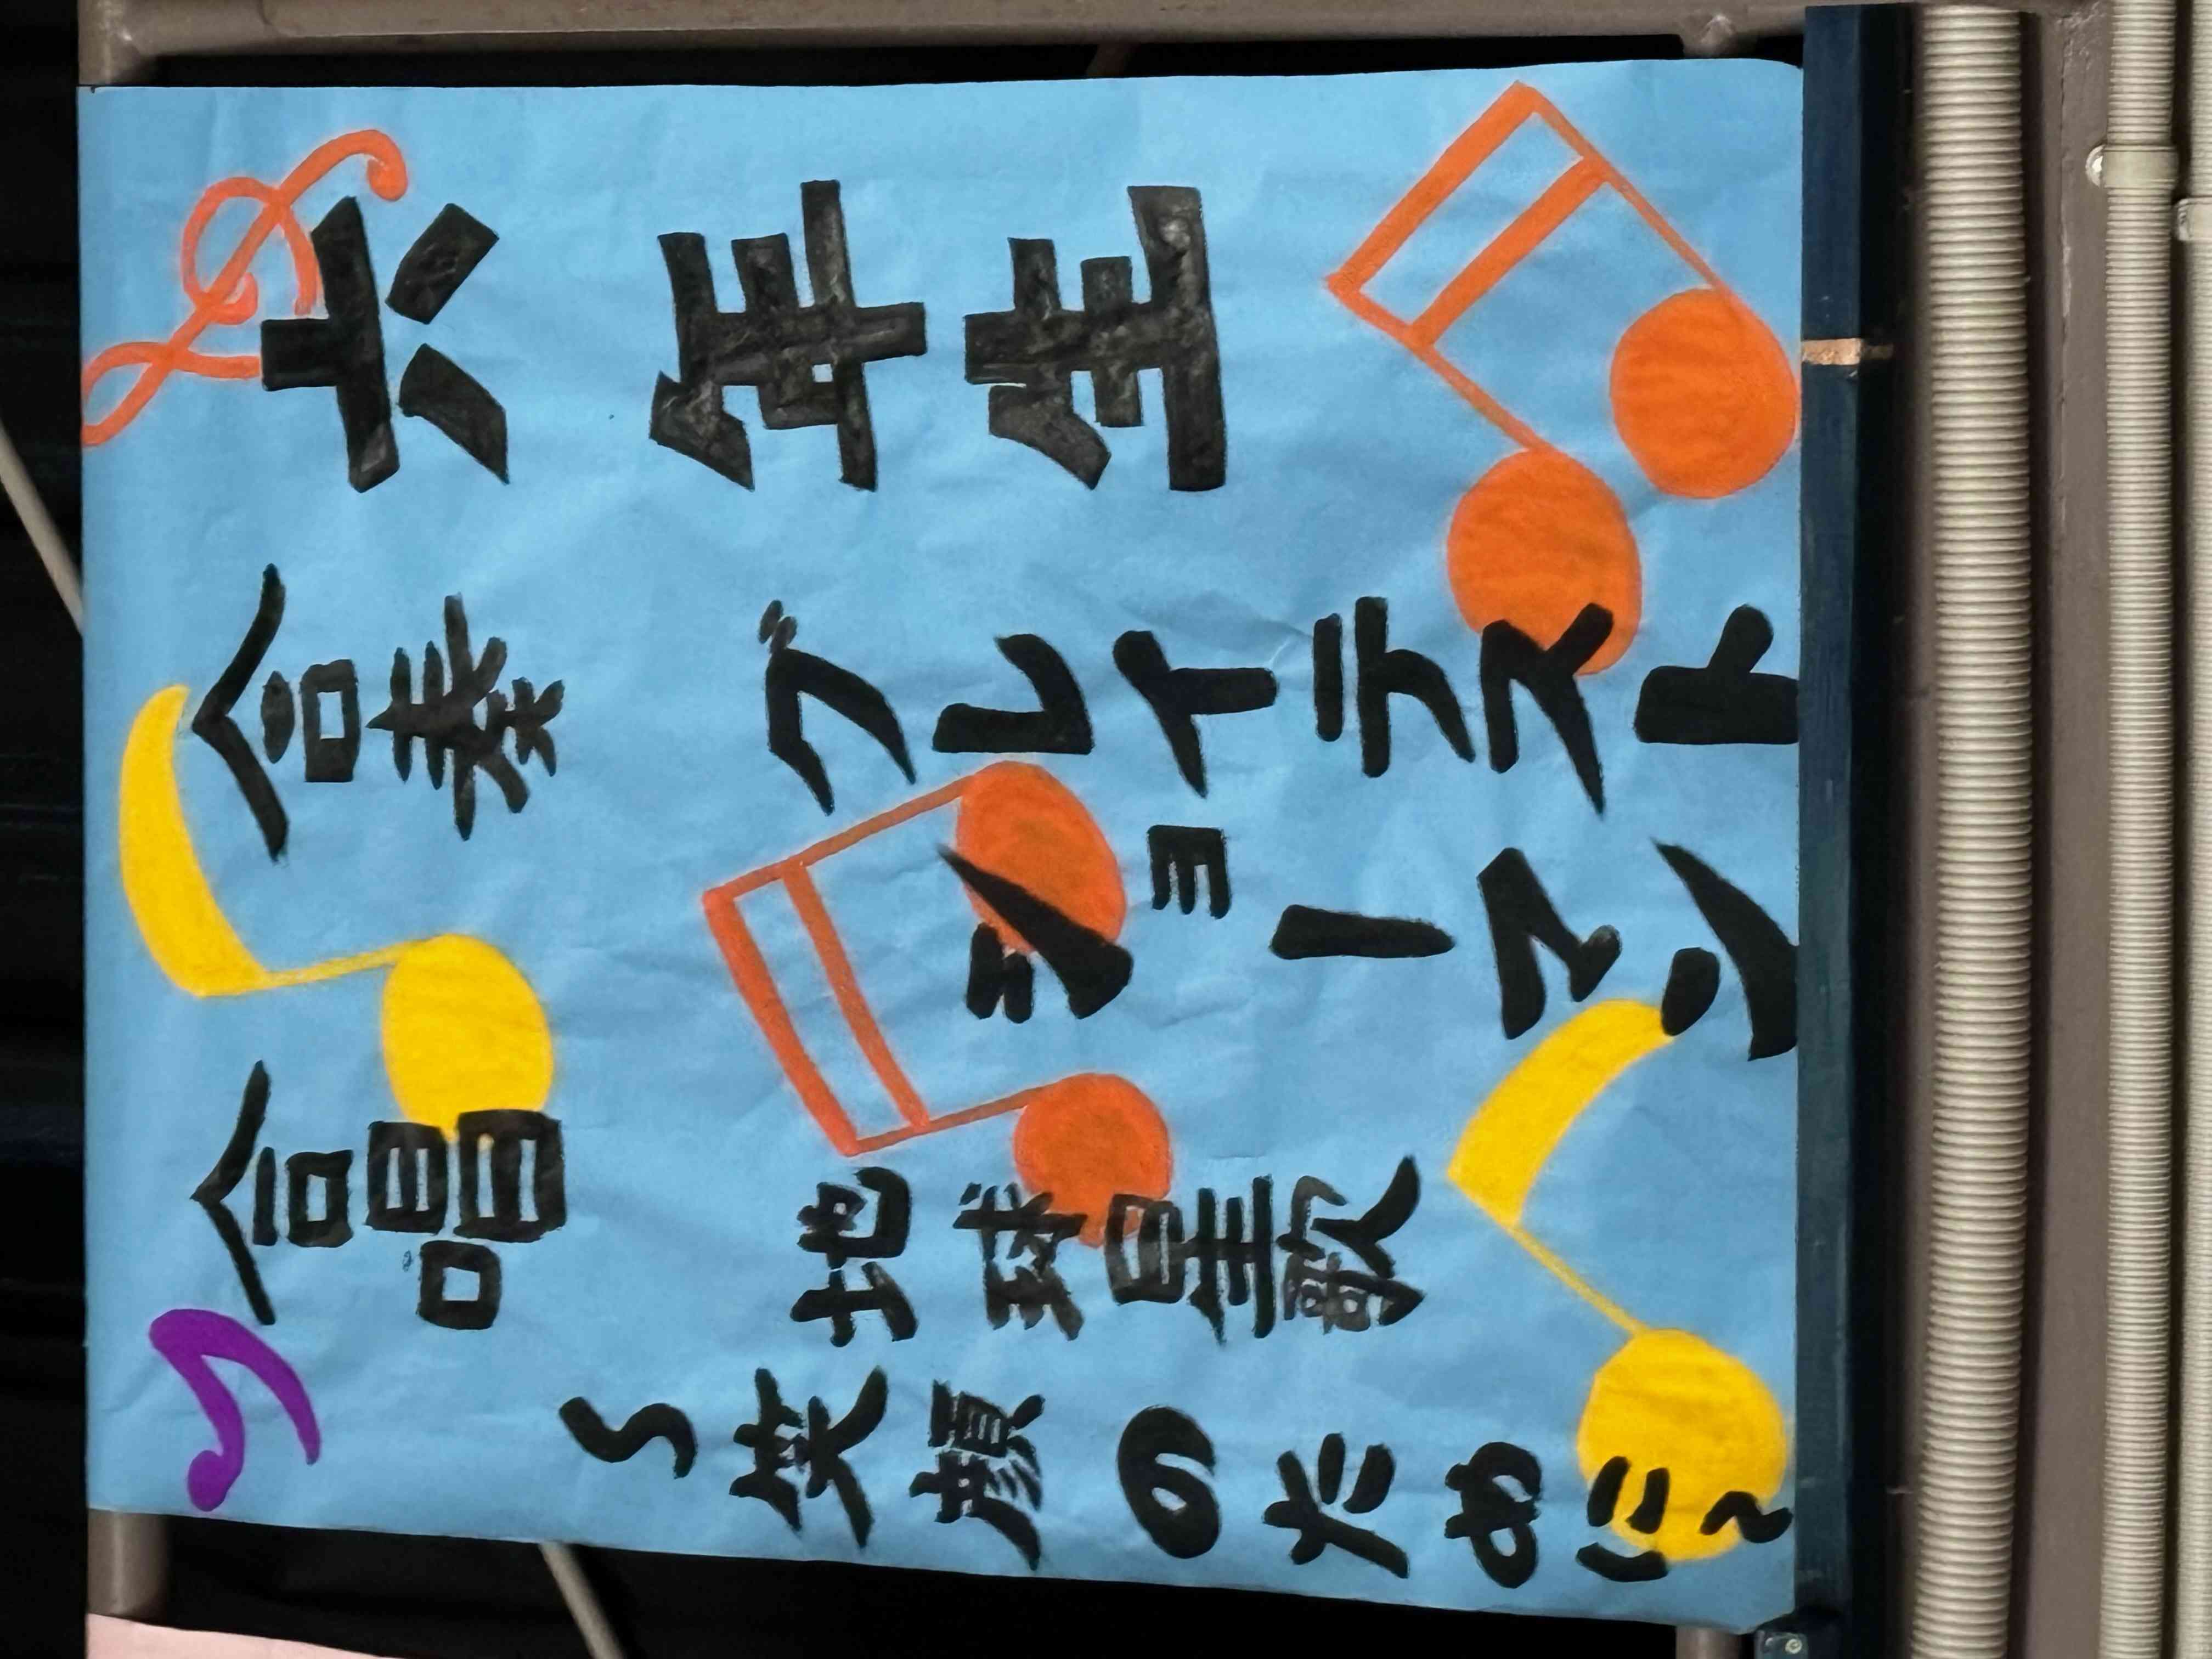 六年生
合奏 グレイテスト
ショーマン
合唱 地球星歌
～笑顔のために～